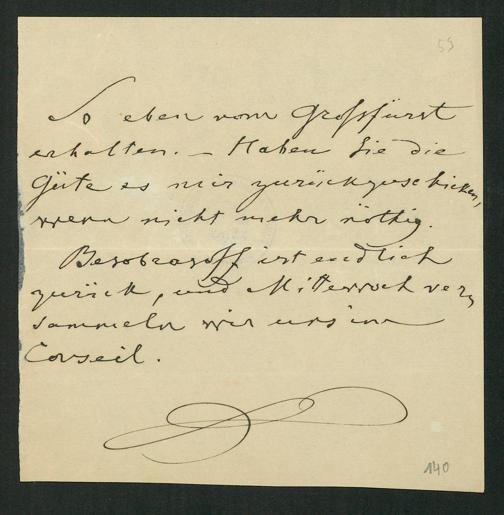 55
So eben vom Großfürst
erhalten. – Haben Sie die
Güte es mir zurückzuschicken,
wenn nicht mehr nöthig.
Besobrasoff ist endlich
zurück, und Mittwoch ver-
sammeln wir uns im
Conseil.
140